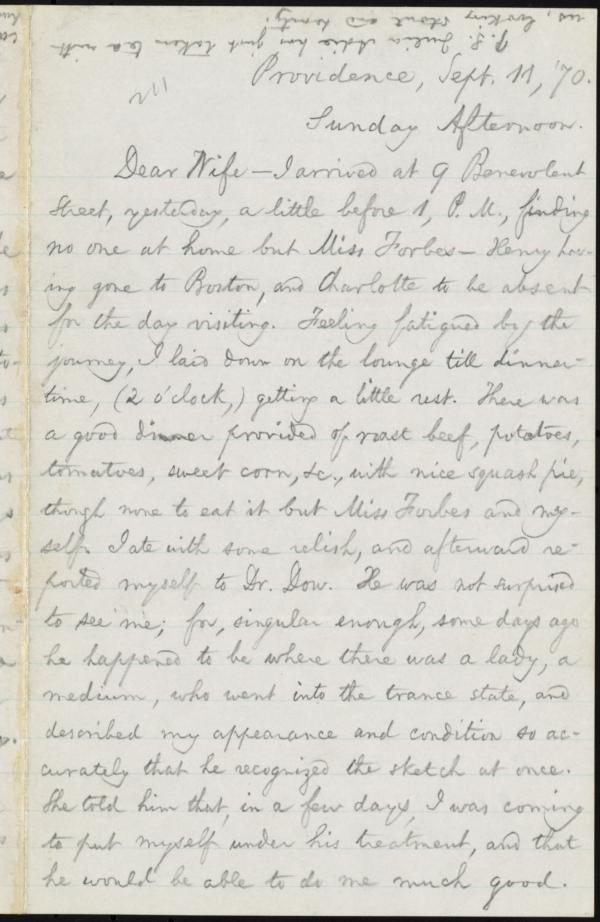 P. S. Julia Adie has just taken tea with
us, looking stout and hearty.
Providence, Sept. 11, '70.
Sunday Afternoon.
Dear Wife—I arrived at 9 Benevolent
Street, yesterday, a little before 1, P. M., finding
no one at home but Miss Forbes—Henry hav-
ing gone to Boston, and Charlotte to be absent
for the day visiting. Feeling fatigued by the
journey, I laid down on the lounge till dinner-
time, (2 o'clock,) getting a little rest. There was
a good dinner provided of roast beef, potatoes,
tomatoes, sweet corn, &c., with nice squash pie,
though none to eat it but Miss Forbes and my-
self. I ate with some relish, and afterward re-
ported myself to Dr. Dow. He was not surprised
to see me; for, singular enough, some days ago
he happened to be where there was a lady, a
medium, who went into the trance state, and
described my appearance and condition so ac-
curately that he recognized the sketch at once.
She told him that, in a few days, I was coming
to put myself under his treatment, and that
he would be able to do me much good.